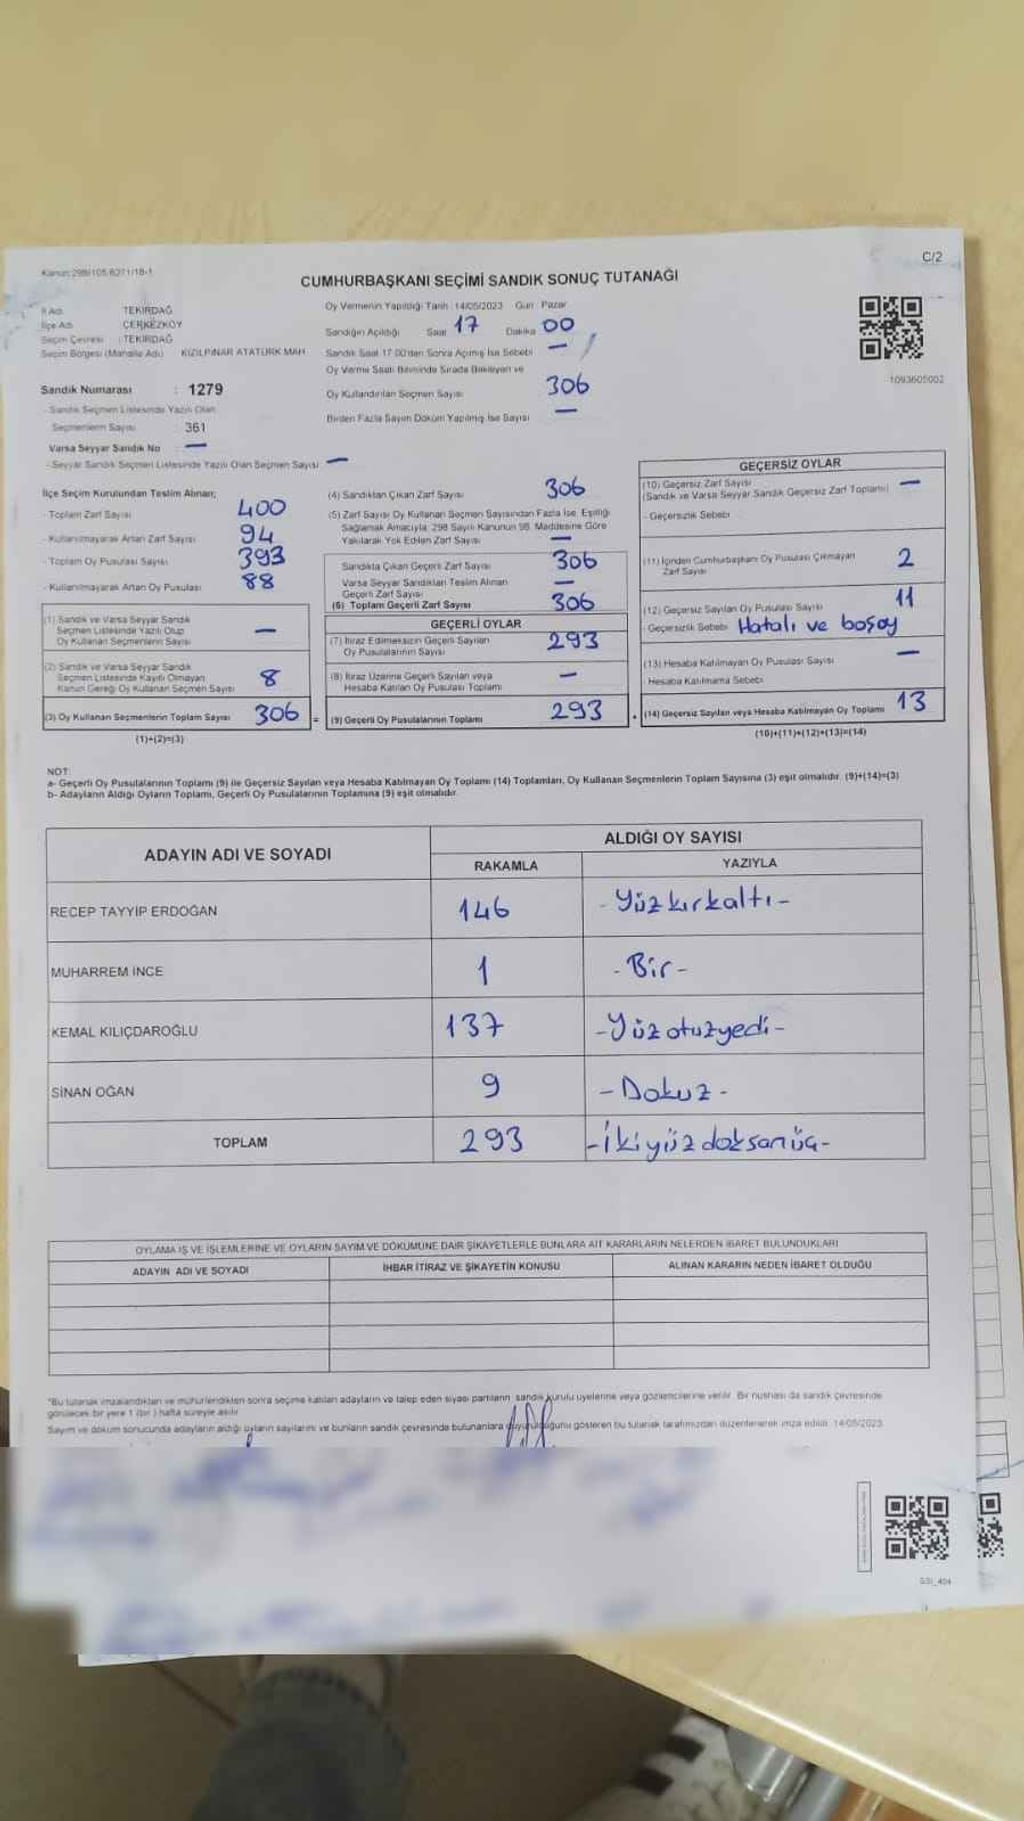 Kanun:298/105,6271/18-1
C/2
CUMHURBAŞKANI SEÇİMİ SANDIK SONUÇ TUTANAĞI
İl Adı TEKİRDAĞ
İlçe Adı ÇERKEZKÖY
Seçim Çevresi : TEKİRDAĞ
Seçim Bölgesi (Mahalle Adı) KIZILPINAR ATATÜRK MAH
Sandık Numarası : 1279
- Sandık Seçmen Listesinde Yazılı Olan
Seçmenlerin Sayısı 361
Varsa Seyyar Sandık No —
- Seyyar Sandık Seçmen Listesinde Yazılı Olan Seçmen Sayısı —
Oy Vermenin Yapıldığı Tarih : 14/05/2023 Gün: Pazar
Sandığın Açıldığı Saat 17 Dakika 00
Sandık Saat 17.00'den Sonra Açılmış İse Sebebi —
Oy Verme Saati Bitiminde Sırada Bekleyen ve
Oy Kullandırılan Seçmen Sayısı 306
Birden Fazla Sayım Döküm Yapılmış İse Sayısı —
1093605002
İlçe Seçim Kurulundan Teslim Alınan;
- Toplam Zarf Sayısı 400
- Kullanılmayarak Artan Zarf Sayısı 94
- Toplam Oy Pusulası Sayısı 393
- Kullanılmayarak Artan Oy Pusulası 88
(1) Sandık ve Varsa Seyyar Sandık
Seçmen Listesinde Yazılı Olup
Oy Kullanan Seçmenlerin Sayısı —
(2) Sandık ve Varsa Seyyar Sandık
Seçmen Listesinde Kayıtlı Olmayan
Kanun Gereği Oy Kullanan Seçmen Sayısı 8
(3) Oy Kullanan Seçmenlerin Toplam Sayısı 306 =
(1)+(2)=(3)
(4) Sandıktan Çıkan Zarf Sayısı 306
(5) Zarf Sayısı Oy Kullanan Seçmen Sayısından Fazla İse, Eşitliği
Sağlamak Amacıyla; 298 Sayılı Kanunun 98. Maddesine Göre
Yakılarak Yok Edilen Zarf Sayısı —
Sandıkta Çıkan Geçerli Zarf Sayısı 306
Varsa Seyyar Sandıktan Teslim Alınan
Geçerli Zarf Sayısı —
(6) Toplam Geçerli Zarf Sayısı 306
GEÇERLİ OYLAR
(7) İtiraz Edilmeksizin Geçerli Sayılan
Oy Pusulalarının Sayısı 293
(8) İtiraz Üzerine Geçerli Sayılan veya
Hesaba Katılan Oy Pusulası Toplamı —
(9) Geçerli Oy Pusulalarının Toplamı 293 +
GEÇERSİZ OYLAR
(10) Geçersiz Zarf Sayısı
(Sandık ve Varsa Seyyar Sandık Geçersiz Zarf Toplamı) —
- Geçersizlik Sebebi
(11) İçinden Cumhurbaşkanı Oy Pusulası Çıkmayan
Zarf Sayısı 2
(12) Geçersiz Sayılan Oy Pusulası Sayısı 11
- Geçersizlik Sebebi Hatalı ve boşoy
(13) Hesaba Katılmayan Oy Pusulası Sayısı —
- Hesaba Katılmama Sebebi
(14) Geçersiz Sayılan veya Hesaba Katılmayan Oy Toplamı 13
(10)+(11)+(12)+(13)=(14)
NOT:
a- Geçerli Oy Pusulalarının Toplamı (9) ile Geçersiz Sayılan veya Hesaba Katılmayan Oy Toplamı (14) Toplamları, Oy Kullanan Seçmenlerin Toplam Sayısına (3) eşit olmalıdır. (9)+(14)=(3)
b- Adayların Aldığı Oyların Toplamı, Geçerli Oy Pusulalarının Toplamına (9) eşit olmalıdır.
ADAYIN ADI VE SOYADI ALDIĞI OY SAYISI
RAKAMLA YAZIYLA
RECEP TAYYİP ERDOĞAN 146 - Yüzkırkaltı -
MUHARREM İNCE 1 - Bir -
KEMAL KILIÇDAROĞLU 137 - Yüzotuzyedi -
SİNAN OĞAN 9 - Dokuz -
TOPLAM 293 - İkiyüzdoksanüç -
OYLAMA İŞ VE İŞLEMLERİNE VE OYLARIN SAYIM VE DÖKÜMÜNE DAİR ŞİKAYETLERLE BUNLARA AİT KARARLARIN NELERDEN İBARET BULUNDUKLARI
ADAYIN ADI VE SOYADI İHBAR İTİRAZ VE ŞİKAYETİN KONUSU ALINAN KARARIN NEDEN İBARET OLDUĞU
*Bu tutanak imzalandıktan ve mühürlendikten sonra seçime katılan adayların ve talep eden siyasi partilerin sandık kurulu üyelerine veya gözlemcilerine verilir. Bir nüshası da sandık çevresinde
görülecek bir yere 1 (bir) hafta süreyle asılır.
Sayım ve döküm sonucunda adayların aldığı oyların sayılarını ve bunların sandık çevresinde bulunanlara duyurulduğunu gösteren bu tutanak tarafımızdan düzenlenerek imza edildi. 14/05/2023